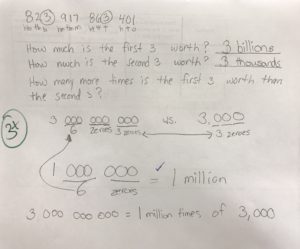 823 917 863 401
How much is the first 3 worth? 3 billions
How much is the second 3 worth? 3 thousands
How many more times is the first 3 worth than
the second 3?
3x
3 000 000 000 vs. 3,000
6 zeroes 3 zeroes 3 zeroes
1 000 000 = 1 million
6 zeroes
3 000 000 000 = 1 million times of 3,000